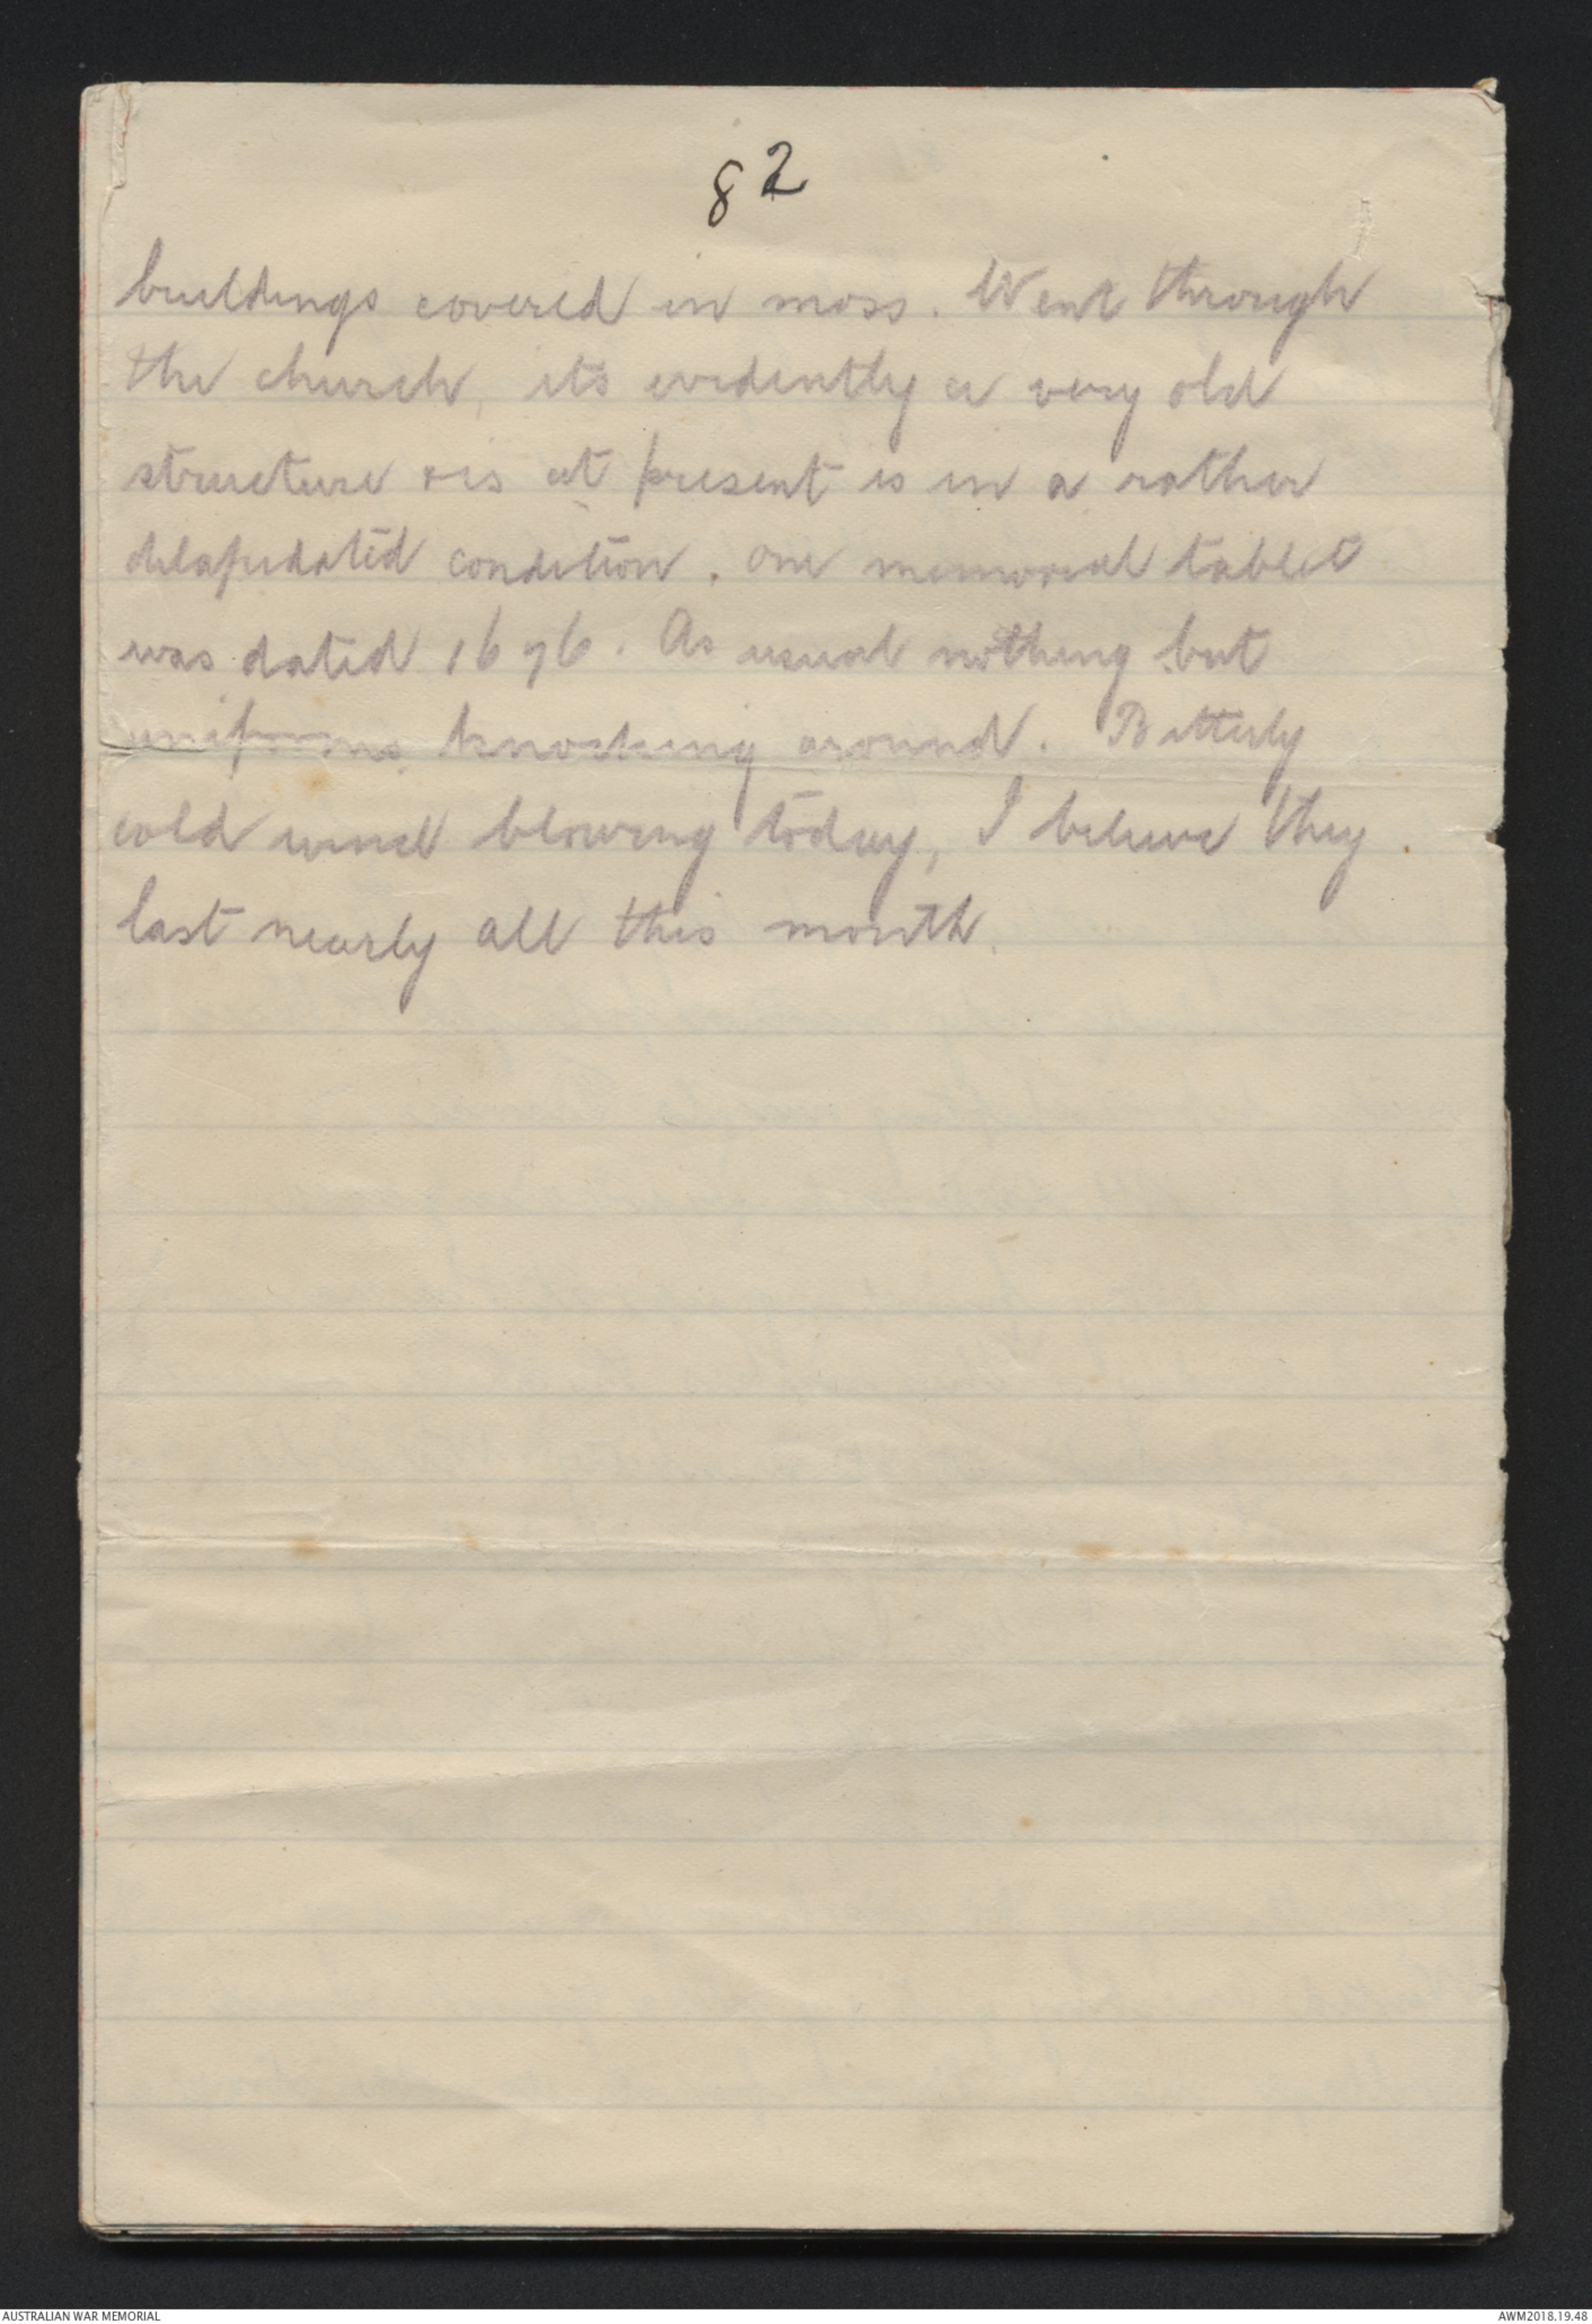 82
buildings covered in moss. Went through
the church, its evidently a very old
structure & is at present is in a rather
delapidated condition. One memorial tablet
was dated 1696. As usual nothing but
uniforms knocking around. Bitterly
cold wind blowing today, I believe they
last nearly all this month.
AUSTRALIAN WAR MEMORIAL
AWM2018.19.48